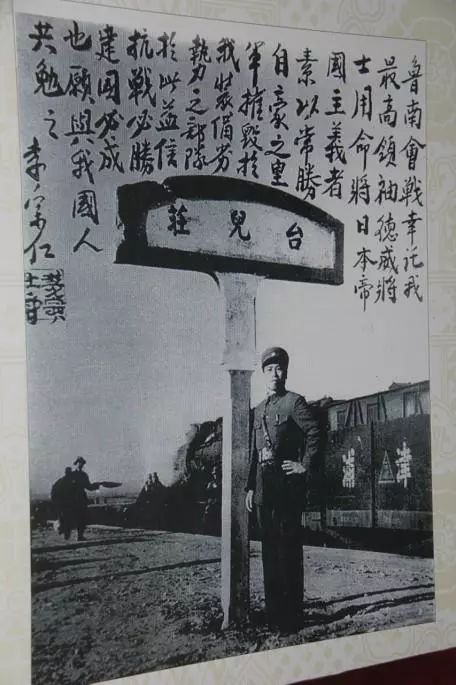 魯南會戰幸托我
最高領袖德威將
士用命將日本帝
國主義者
素以常勝
自豪之皇
軍摧毀於
我裝備劣
勢之部隊
於此益信
抗戰必勝
建國必成
也願與我國人
共勉之 李宗仁
台兒莊
津浦